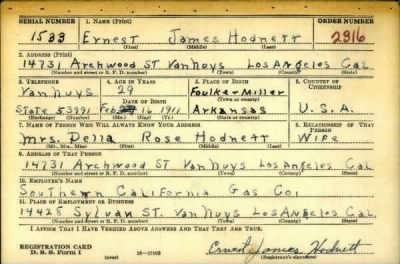 SERIAL NUMBER 1. NAME (Print) ORDER NUMBER
1533 Ernest James Hodnett 2816
(First) (Middle) (Last)
2. ADDRESS (Print)
14731 Archwood ST Van Nuys Los Angeles Cal
(Number and street or R. F. D. number) (Town) (County) (State)
3. TELEPHONE 4. AGE IN YEARS 5. PLACE OF BIRTH 6. COUNTRY OF CITIZENSHIP
Van Nuys 29 Foulke-Miller
DATE OF BIRTH (Town or county)
State 53991 Feb 16 1911 Arkansas U.S.A.
(Exchange) (Number) (Mo.) (Day) (Yr.) (State or country)
7. NAME OF PERSON WHO WILL ALWAYS KNOW YOUR ADDRESS 8. RELATIONSHIP OF THAT PERSON
Mrs. Della Rose Hodnett Wife
(Mr., Mrs., Miss) (First) (Middle) (Last)
9. ADDRESS OF THAT PERSON
14731 Archwood ST Van Nuys Los Angeles Cal
(Number and street or R. F. D. number) (Town) (County) (State)
10. EMPLOYER'S NAME
Southern California Gas Co.
11. PLACE OF EMPLOYMENT OR BUSINESS
14428 Sylvan ST. Van Nuys Los Angeles Cal.
(Number and street or R. F. D. number) (Town) (County) (State)
I AFFIRM THAT I HAVE VERIFIED ABOVE ANSWERS AND THAT THEY ARE TRUE.
REGISTRATION CARD
D. S. S. Form 1 (over) Ernest James Hodnett
(Registrant's signature)